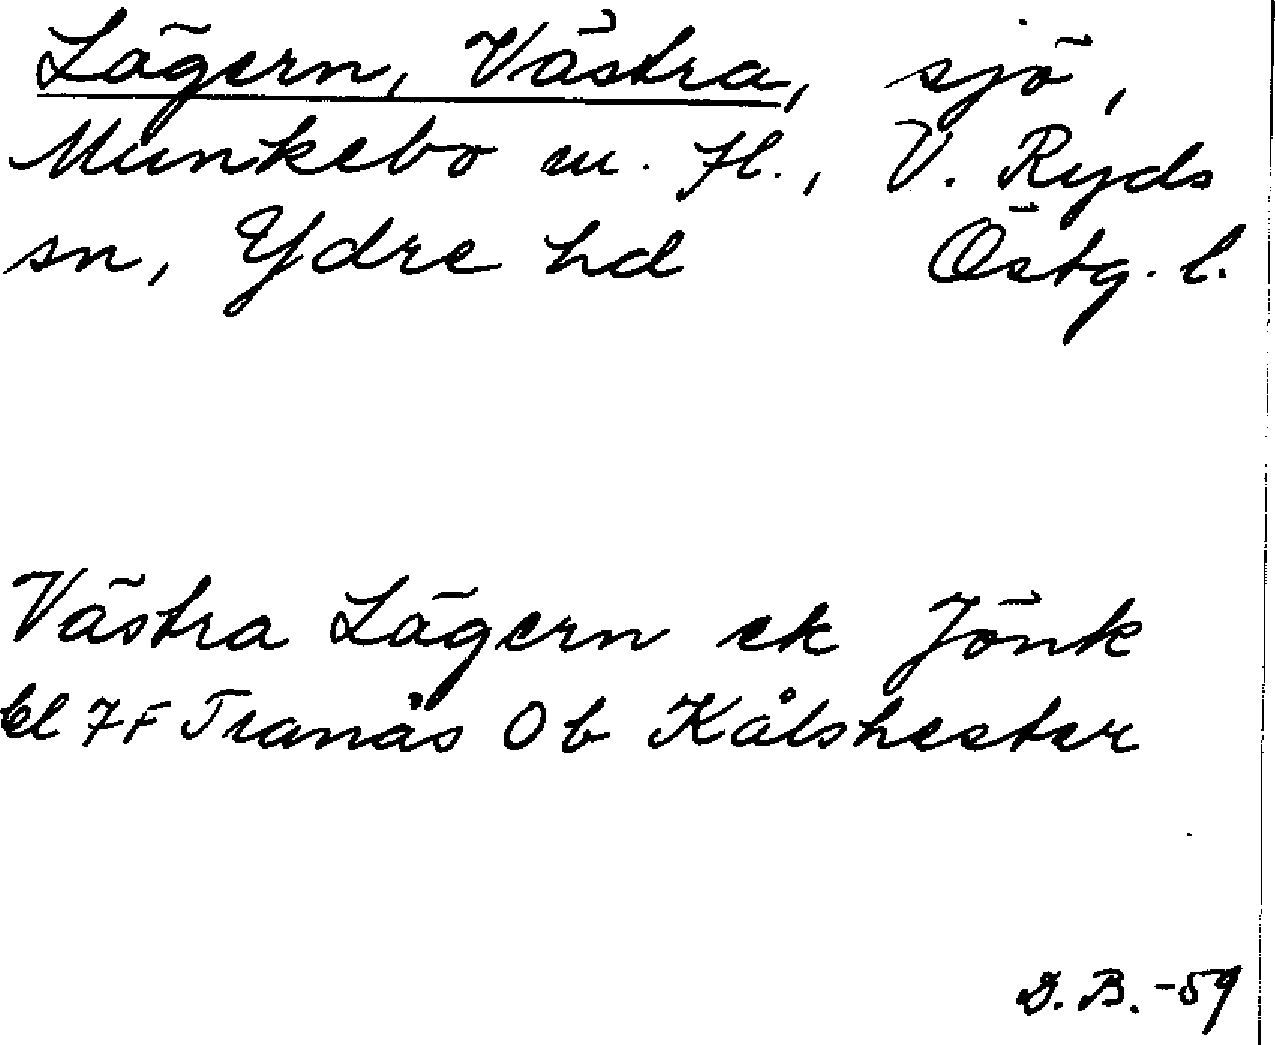 Lägern, Västra, sjö,
Munkebo m. fl., V. Ryds
sn, Ydre hd Östg. l.
Västra Lägern ek Jönk
bl 7F Tranås Ob Kålshester
D. B. -59